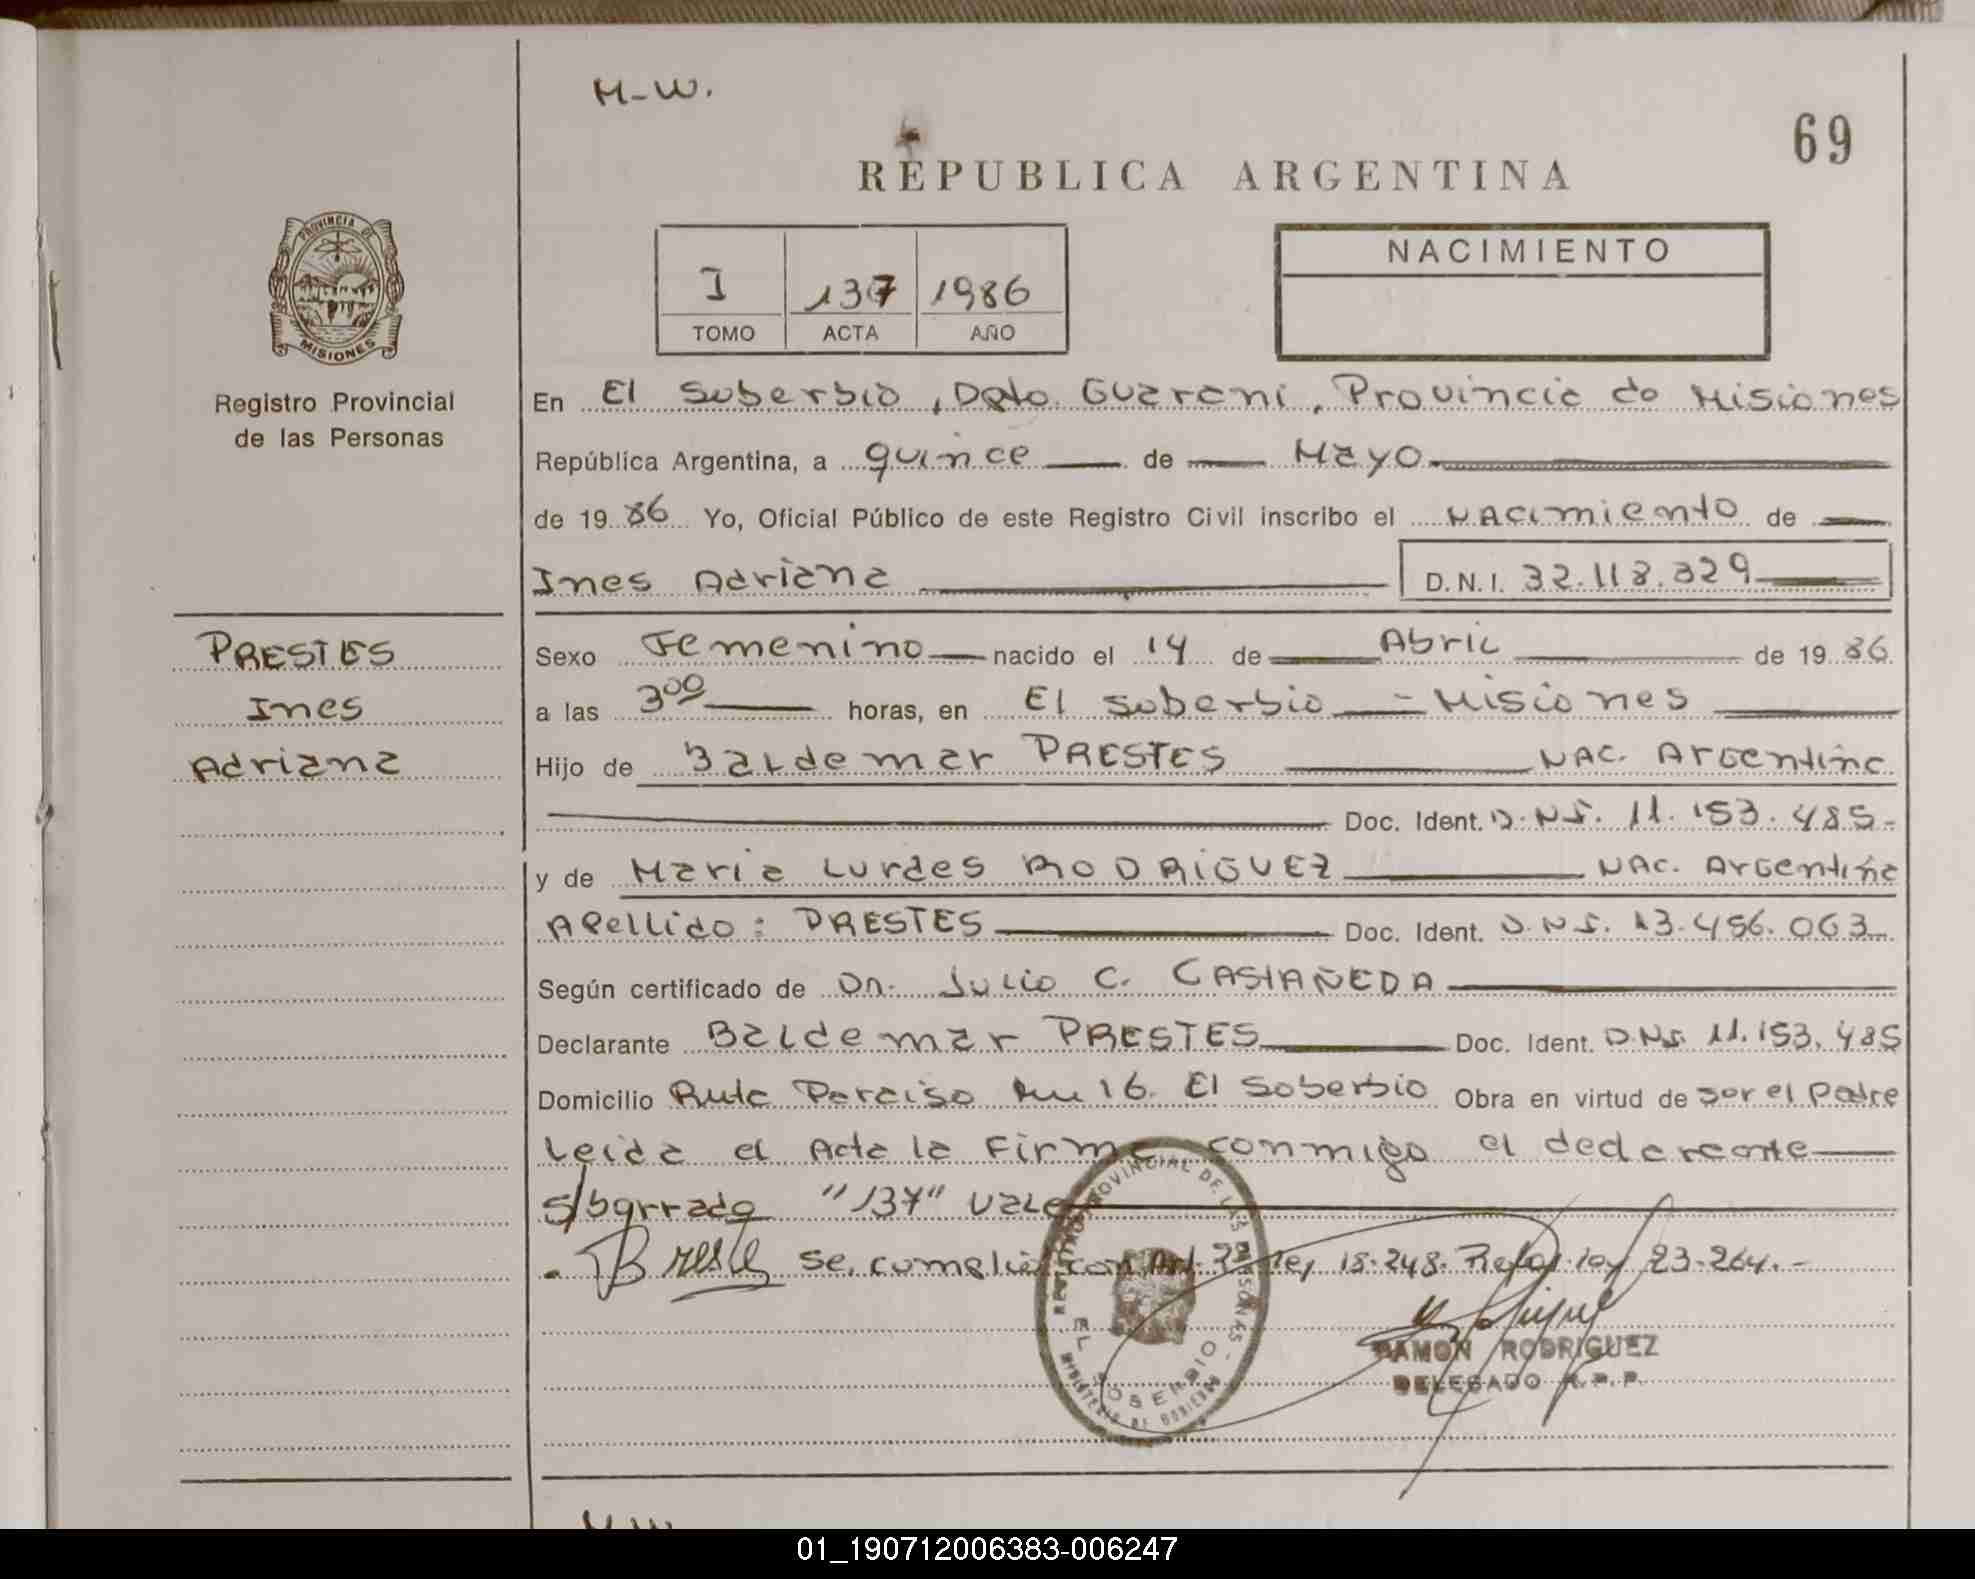 M-W.
69
REPUBLICA ARGENTINA
PROVINCIA DE
MISIONES
Registro Provincial
de las Personas
I 137 1986
TOMO ACTA AÑO
NACIMIENTO
En El Soberbio, Dpto. Guarani, Provincia de Misiones
República Argentina, a quince de Mayo
de 1986 Yo, Oficial Público de este Registro Civil inscribo el Nacimiento de
Ines Adriana D.N.I. 32.118.329
PRESTES
Ines
Adriana
Sexo Femenino nacido el 14 de Abril de 1986
a las 3 00 horas, en El Soberbio - Misiones
Hijo de Baldemar PRESTES NAC. Argentina
Doc. Ident. D.N.I. 11.153.485-
y de Maria Lurdes RODRIGUEZ NAC. Argentina
Apellido: PRESTES Doc. Ident. D.N.I. 13.456.063
Según certificado de Dr. Julio C. CASTAÑEDA
Declarante Baldemar PRESTES Doc. Ident. D.N.I. 11.153.485
Domicilio Ruta Paraiso Km 16. El Soberbio Obra en virtud de ser el padre
Leida el Acta la Firma conmigo el declarante
s/barrado "137" Vale
se cumplió con Art. Ley 18.248. Ley 23-264.-
REGISTRO PROVINCIAL DE LAS PERSONAS
EL SOBERBIO
MINISTERIO DE GOBIERNO
RAMON RODRIGUEZ
DELEGADO R.P.P.
01_190712006383-006247